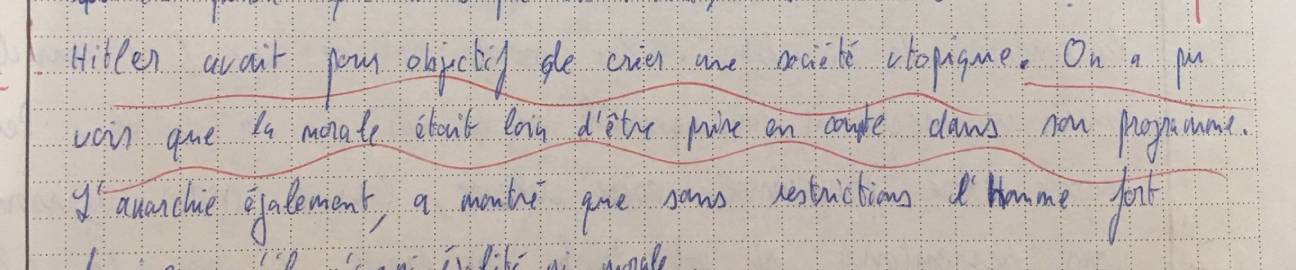 Hitler avait pour objectif de créer une société utopique. On a pu
voir que la morale était loin d'être prise en compte dans son programme.
L'anarchie également, a montré que sans restrictions l'Homme fort
ni morale